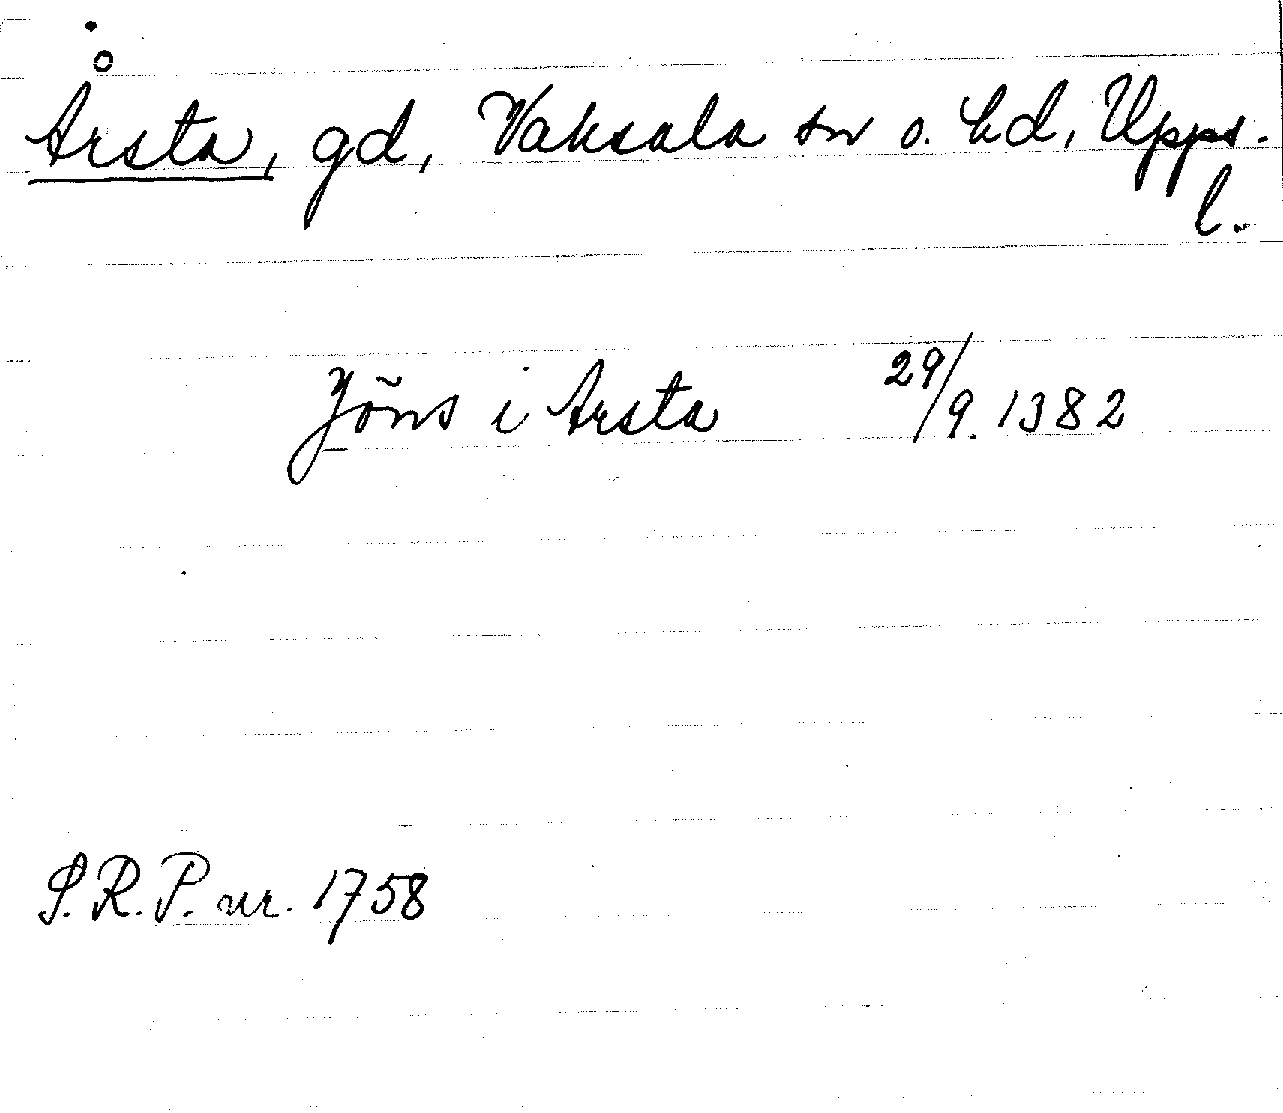 Årsta, gd, Vaksala sn o. hd, Upps.
l.
Jöns i Arsta 29/9. 1382
S.R.P. nr. 1758